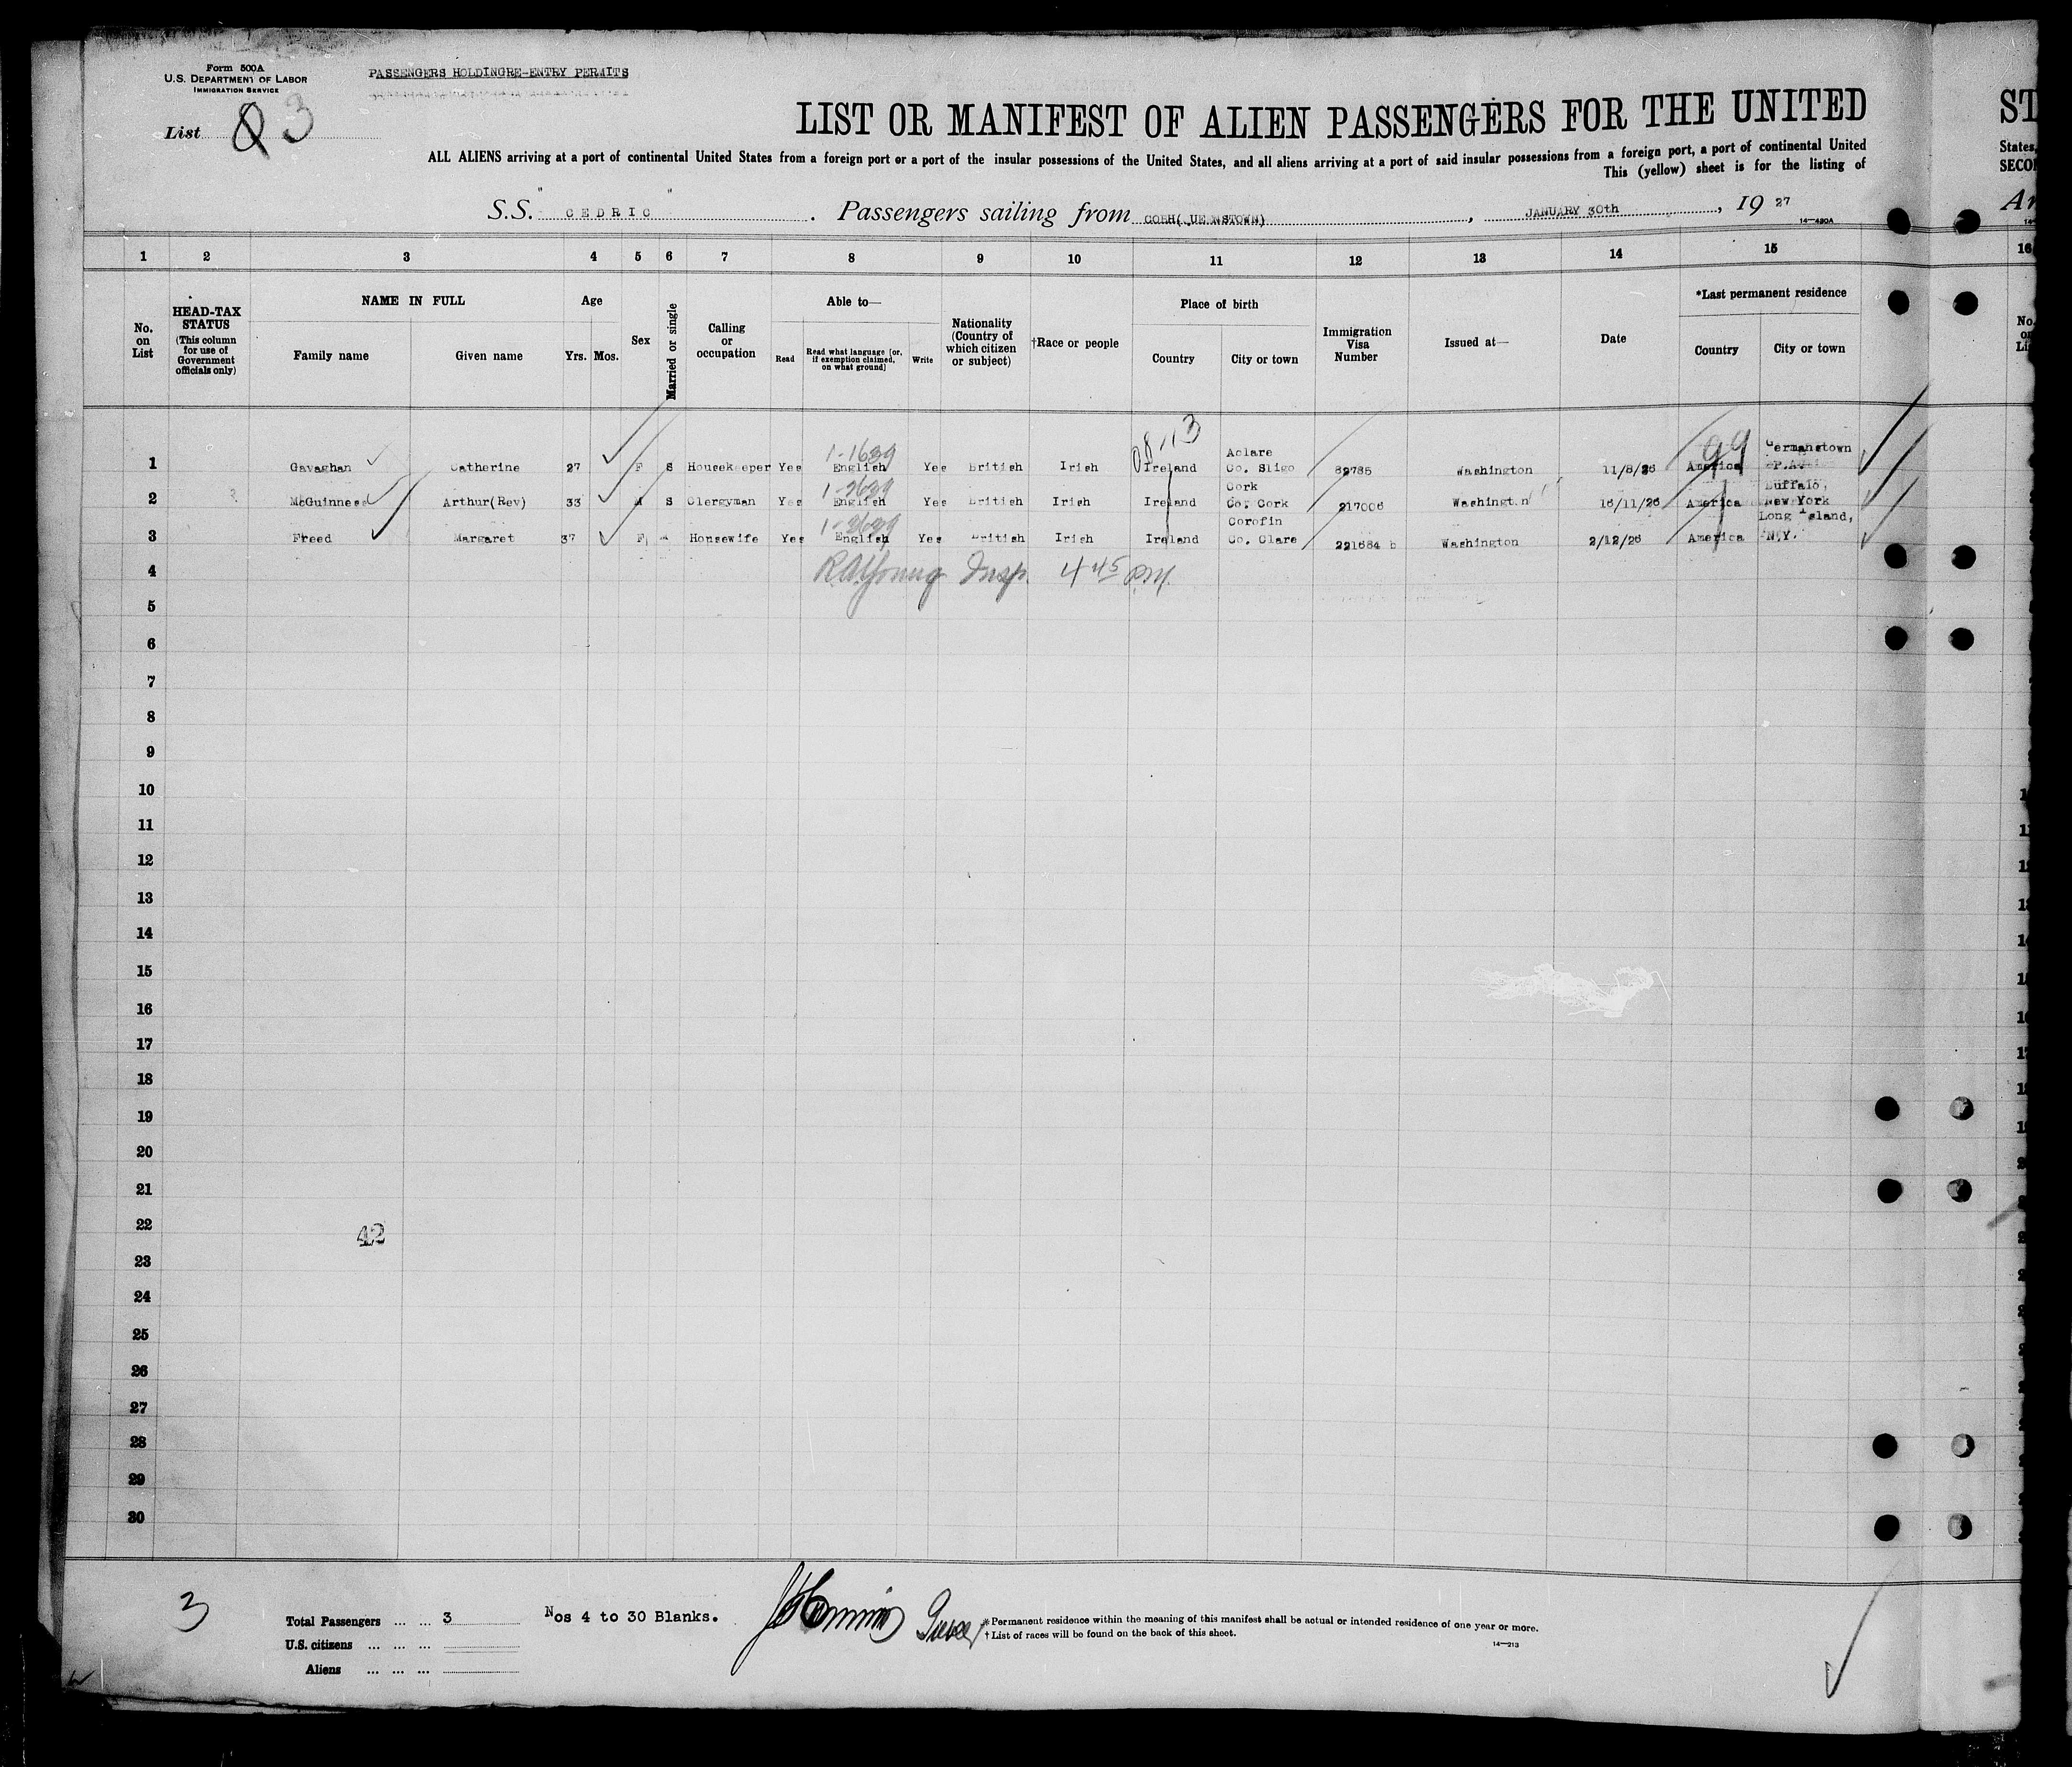 Form 500A
U.S. DEPARTMENT OF LABOR
IMMIGRATION SERVICE
PASSENGERS HOLDINGRE-ENTRY PERMITS
List 3
LIST OR MANIFEST OF ALIEN PASSENGERS FOR THE UNITED
ALL ALIENS arriving at a port of continental United States from a foreign port or a port of the insular possessions of the United States, and all aliens arriving at a port of said insular possessions from a foreign port, a port of continental United
This (yellow) sheet is for the listing of
S.S. "CEDRIC". Passengers sailing from COBH( UEENSTOWN), JANUARY 30th, 19 27
14—430A
1 2 3 4 5 6 7 8 9 10 11 12 13 14 15
No. on List
HEAD-TAX STATUS (This column for use of Government officials only)
NAME IN FULL
Family name Given name
Age
Yrs. Mos.
Sex
Married or single
Calling or occupation
Able to—
Read Read what language [or, if exemption claimed, on what ground] Write
Nationality (Country of which citizen or subject)
†Race or people
Place of birth
Country City or town
Immigration Visa Number
Issued at—
Date
*Last permanent residence
Country City or town
1 Gavaghan Catherine 27 F S Housekeeper Yes English Yes British Irish Ireland Aclare Co. Sligo 82785 Washington 11/8/26 America Germanstown P.A.
2 McGuinness Arthur(Rev) 33 M S Clergyman Yes English Yes British Irish Ireland Cork Co. Cork 217006 Washington 16/11/26 America Buffalo, New York
3 Freed Margaret 37 F Housewife Yes English Yes British Irish Ireland Corofin Co. Clare 221684 b Washington 2/12/26 America Long Island, N.Y.
4 R.A. Young Insp. 4 45 P.M.
5
6
7
8
9
10
11
12
13
14
15
16
17
18
19
20
21
22
42
23
24
25
26
27
28
29
30
3
Total Passengers ... ... 3
U.S. citizens ... ... ...
Aliens ... ... ...
Nos 4 to 30 Blanks.
*Permanent residence within the meaning of this manifest shall be actual or intended residence of one year or more.
†List of races will be found on the back of this sheet.
14—213
ST
States,
16